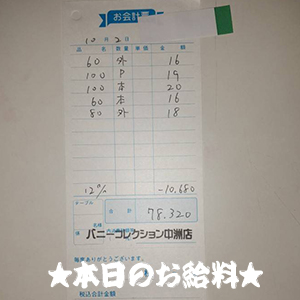 お会計票
12月2日
品名 数量 単価 金額
60 外 16
100 P 19
100 本 20
60 本 16
80 外 18
12% -10,680
テーブル
合計 78,320
様
バニーコレクション中洲店
★本日のお給料★
税込合計金額